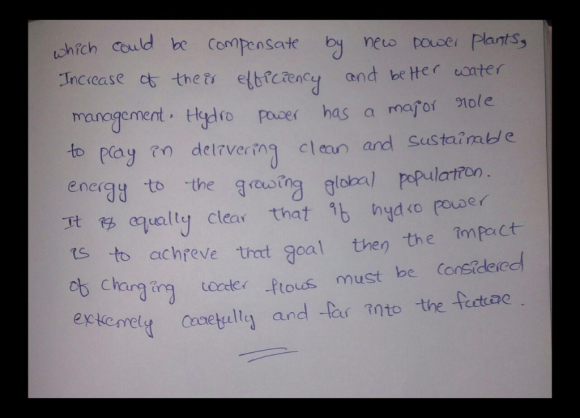 which could be compensate by new power plants,
Increase of their efficiency and better water
management. Hydro power has a major role
to play in delivering clean and sustainable
energy to the growing global population.
It is equally clear that if hydro power
is to achieve that goal then the impact
of changing water flows must be considered
extremely carefully and far into the future.